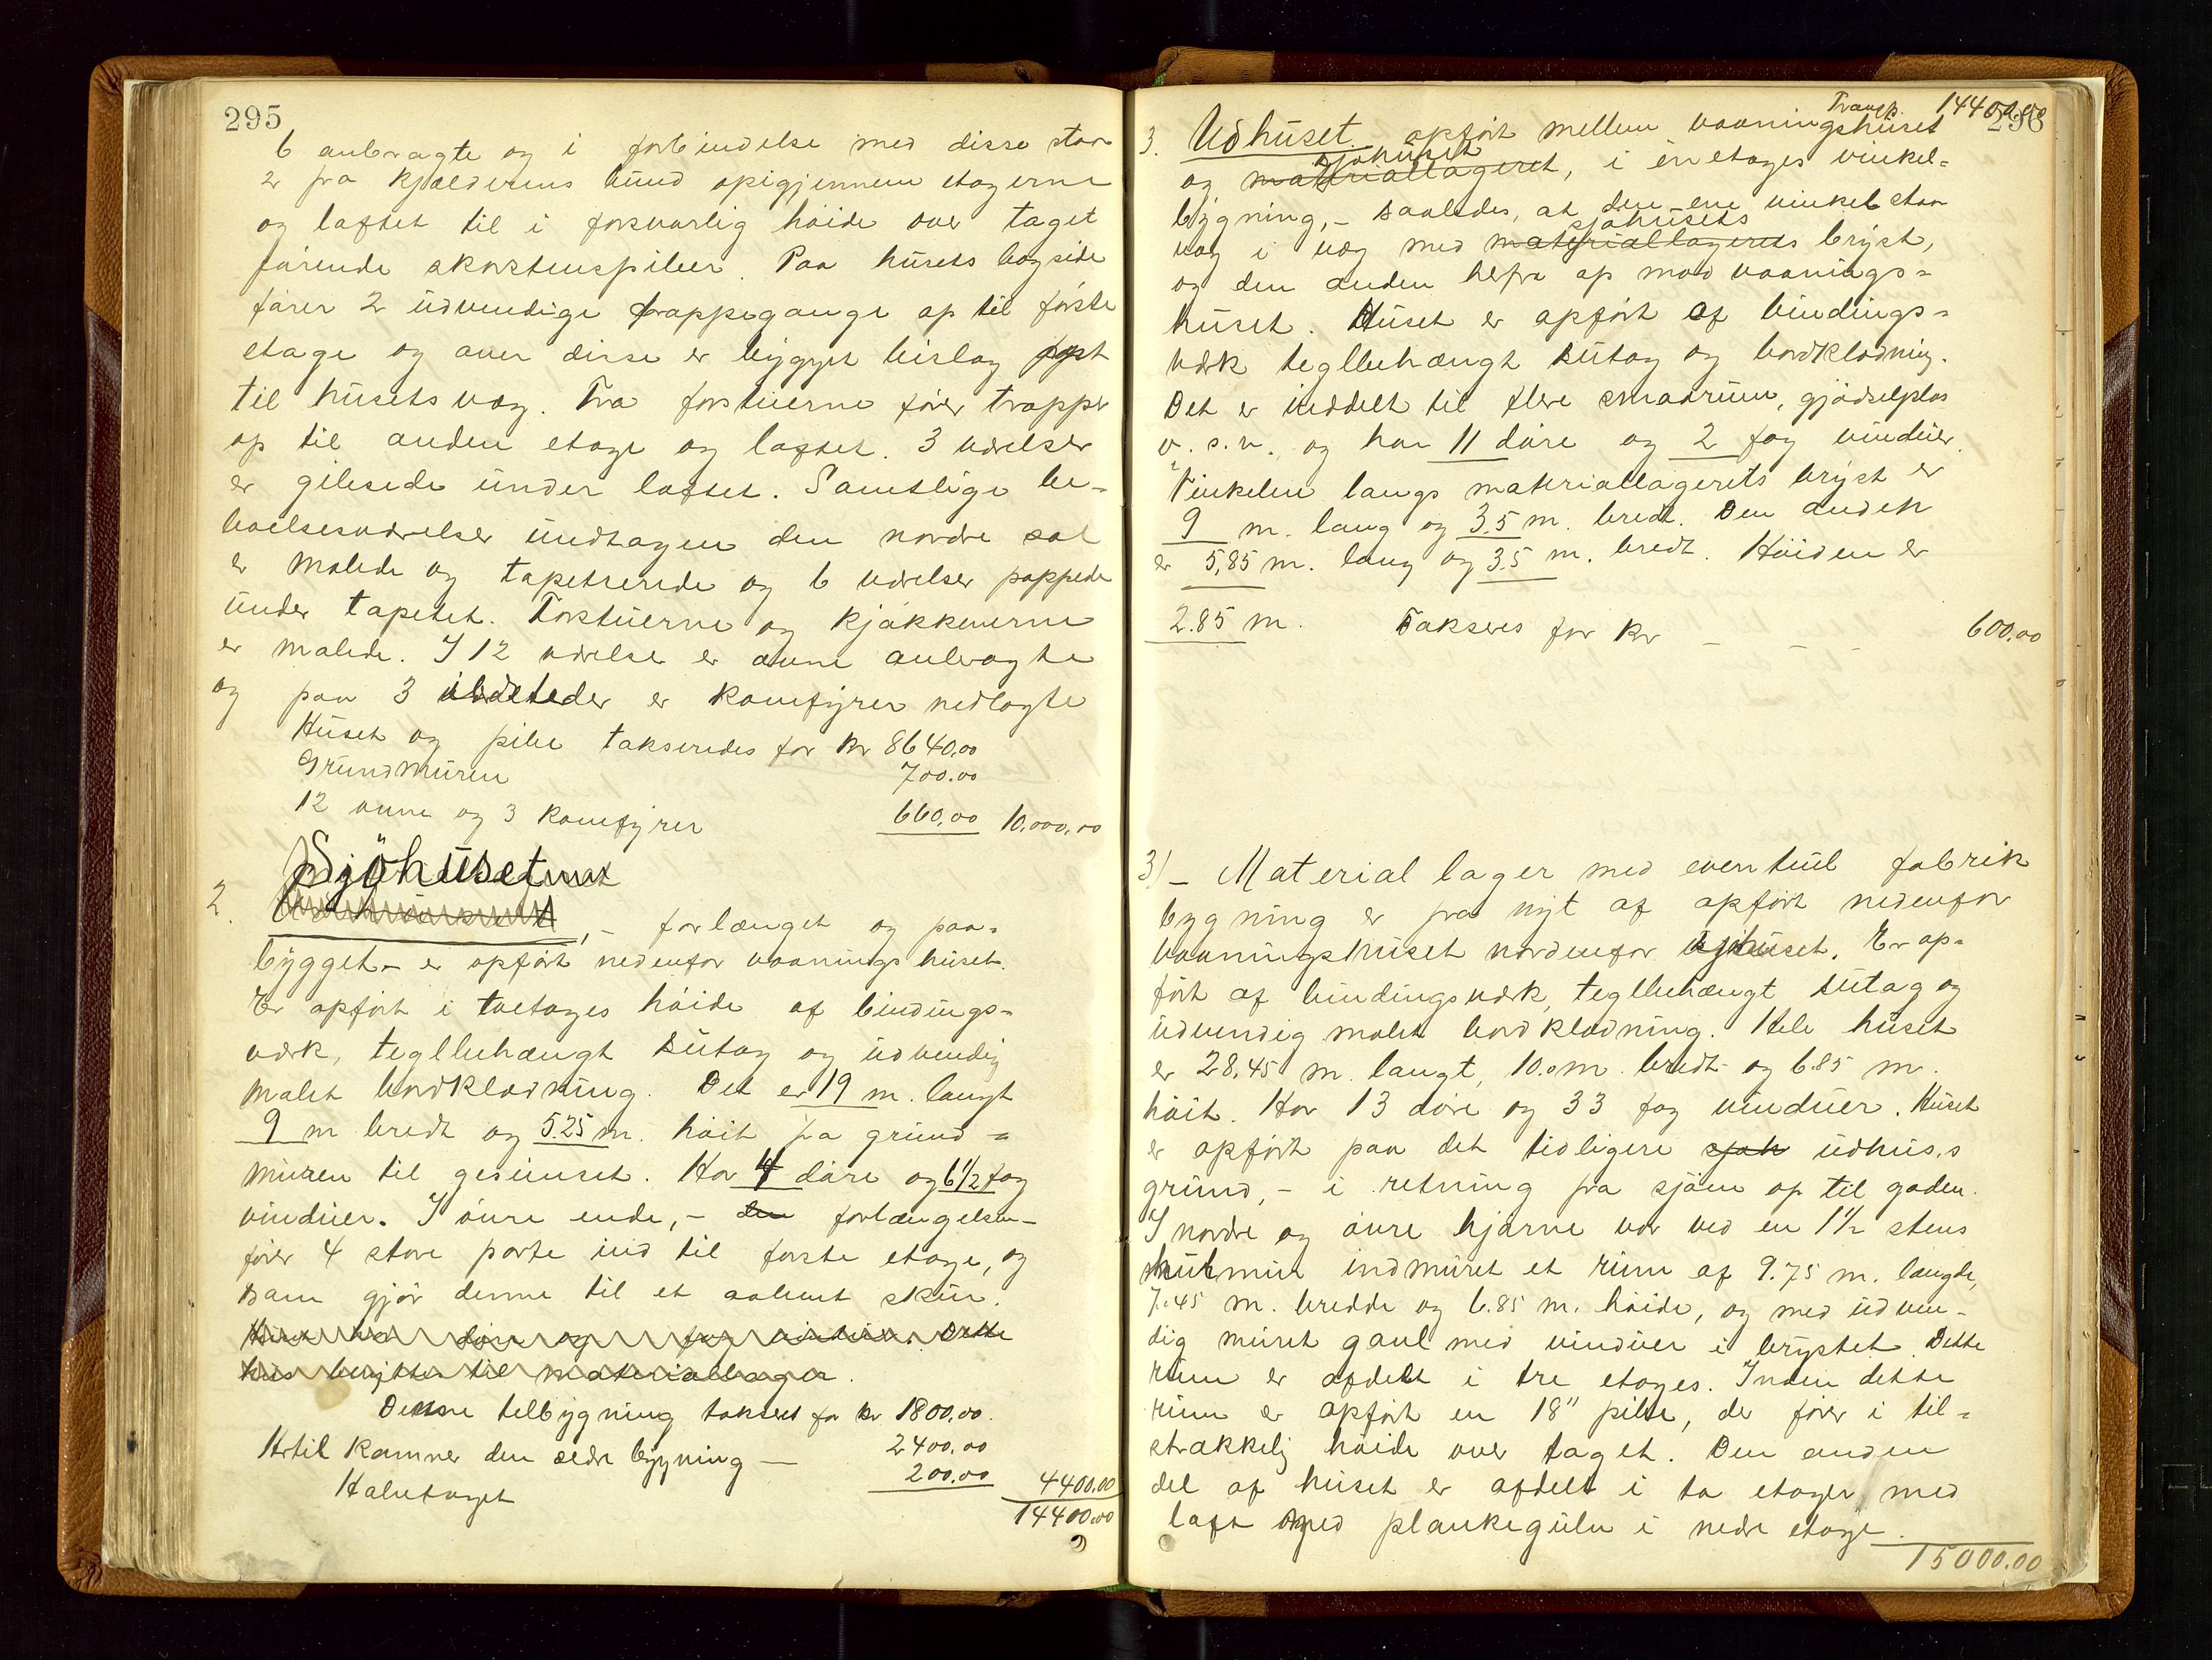 295
6 anbragte og i forbindelse med disse staar
2 fra kjælderens bund opigjennem etagerne
og loftet til i forsvarlig höide over taget
förende skorstenspiber. Paa husets bagside
förer 2 udvendige trappegange op til förste
etage og over disse er bygget bislag fast
til husets væg. Fra forstuerne förer trapper
op til anden etage og loftet. 3 værelser
er gibsede under loftet. Samtlige be-
boelsesværelser undtagen den nordre sal
er malede og tapetserede og 6 værelser pappede
under tapetet. Forstuerne og kjökkenerne
er malede. I 12 værelser er ovne anbragte
og paa 3 ildsteder er komfyrer nedlagte
Huset og piber takseredes for kr 8640.00
Grundmuren 700.00
12 ovne og 3 komfyrer 660.00 10.000.00
Sjöhuset
2. , - forlænget og paa-
bygget - er opfört nedenfor vaaningshuset.
Er opfört i toetages höide af bindings-
værk, teglbehængt sutag og udvendig
malet bordklædning. Det er 19 m. langt
9 m bredt og 5.25 m. höit fra grund-
muren til gesimset. Har 4 döre og 6 1/2 fag
vinduer. I övre ende, - den forlængelsen -
förer 4 store porte ind til förste etage, og
som gjör denne til et aabent skur.
Huset har döre og fag vinduer. Dette
hus benyttes til materiallager.
Denne tilbygning takseret for kr 1800.00.
Hertil kommer den ældre bygning — 2400.00
Halvtaget 200.00 4400.00
14400.00
Transp. 14400.00
296
3. Udhuset. opfört mellem vaaningshuset
sjöhuset
og materiallageret, i en etages vinkel-
bygning, - saaledes, at den ene vinkel staar
sjöhusets
væg i væg med materiallagerets bryst,
og den anden herfra op mod vaanings-
huset. Huset er opfört af bindings-
værk teglbehængt sutag og bordklædning.
Det er inddelt til flere smaarum, gjödselplas
o. s. v., og har 11 döre og 2 fag vinduer.
Vinkelen langs materiallagerets bryst er
9 m. lang og 3.5 m. bredt. Den anden
er 5,85 m. lang og 3.5 m. bredt. Höiden er
2.85 m. Takseres for kr — 600.00
3/ - Material lager med eventuel fabrik
bygning er fra nyt af opfört nedenfor
vaaningshuset nordenfor sjöhuset. Er op-
fört af bindingsværk, teglbehængt sutag og
udvendig malet bordklædning. Hele huset
er 28.45 m. langt, 10.0 m. bredt og 6.85 m.
höit. Har 13 döre og 33 fag vinduer. Huset
er opfört paa det tidligere sjöh udhus.s
grund, - i retning fra sjöen op til gaden.
I nordre og övre hjörne var ved en 1 1/2 stens
hulmur indmuret et rum af 9.75 m. længde,
7.45 m. bredde og 6.85 m. höide, og med udven-
dig muret gavl med vinduer i brystet. Dette
rum er afdelt i tre etages. Inden dette
rum er opfört en 18" pibe, der förer i til-
strækkelig höide over taget. Den anden
del af huset er afdelt i to etager med
loft med plankegulv i nedre etage.
15000.00